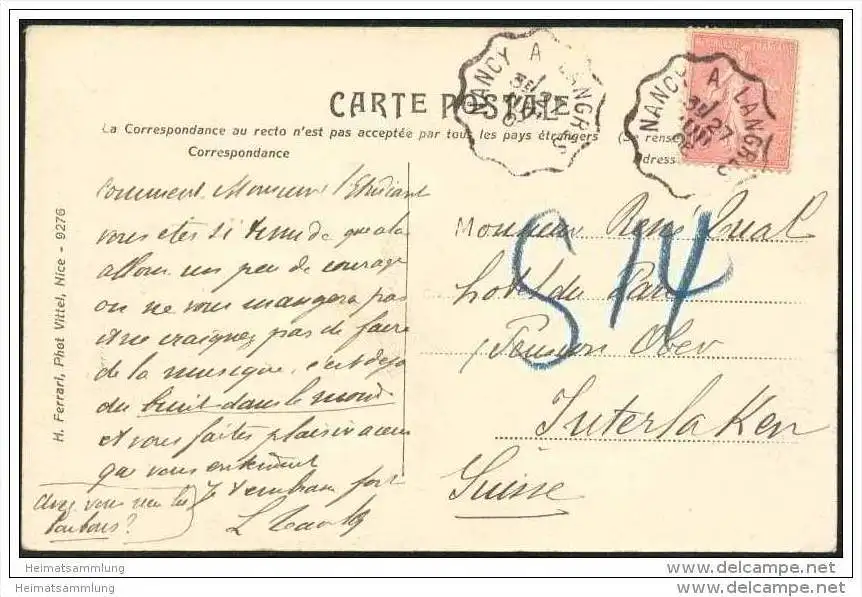 CARTE POSTALE
La Correspondance au recto n'est pas acceptée par tous les pays étrangers (Se rense
Correspondance
adress
NANCY A LANGRES
27
NANCY A LANGRES
27
H. Ferrari, Phot Vittel, Nice - 9276
Comment Monsieur l'Etudiant
vous etes si timide que cela
allons un peu de courage
on ne vous mangera pas
et ne craignez pas de faire
de la musique, c'est deja
du bruit dans le monde
et vous faites plaisir a ceux
qui vous entendent
Je t'embrasse fort
avez vous recu les
bonbons?
Monsieur René
hotel du Parc
Pension Ober
Interlaken
Suisse
S 14
Heimatsammlung
Heimatsammlung
www.delcampe.net
www.delcampe.net